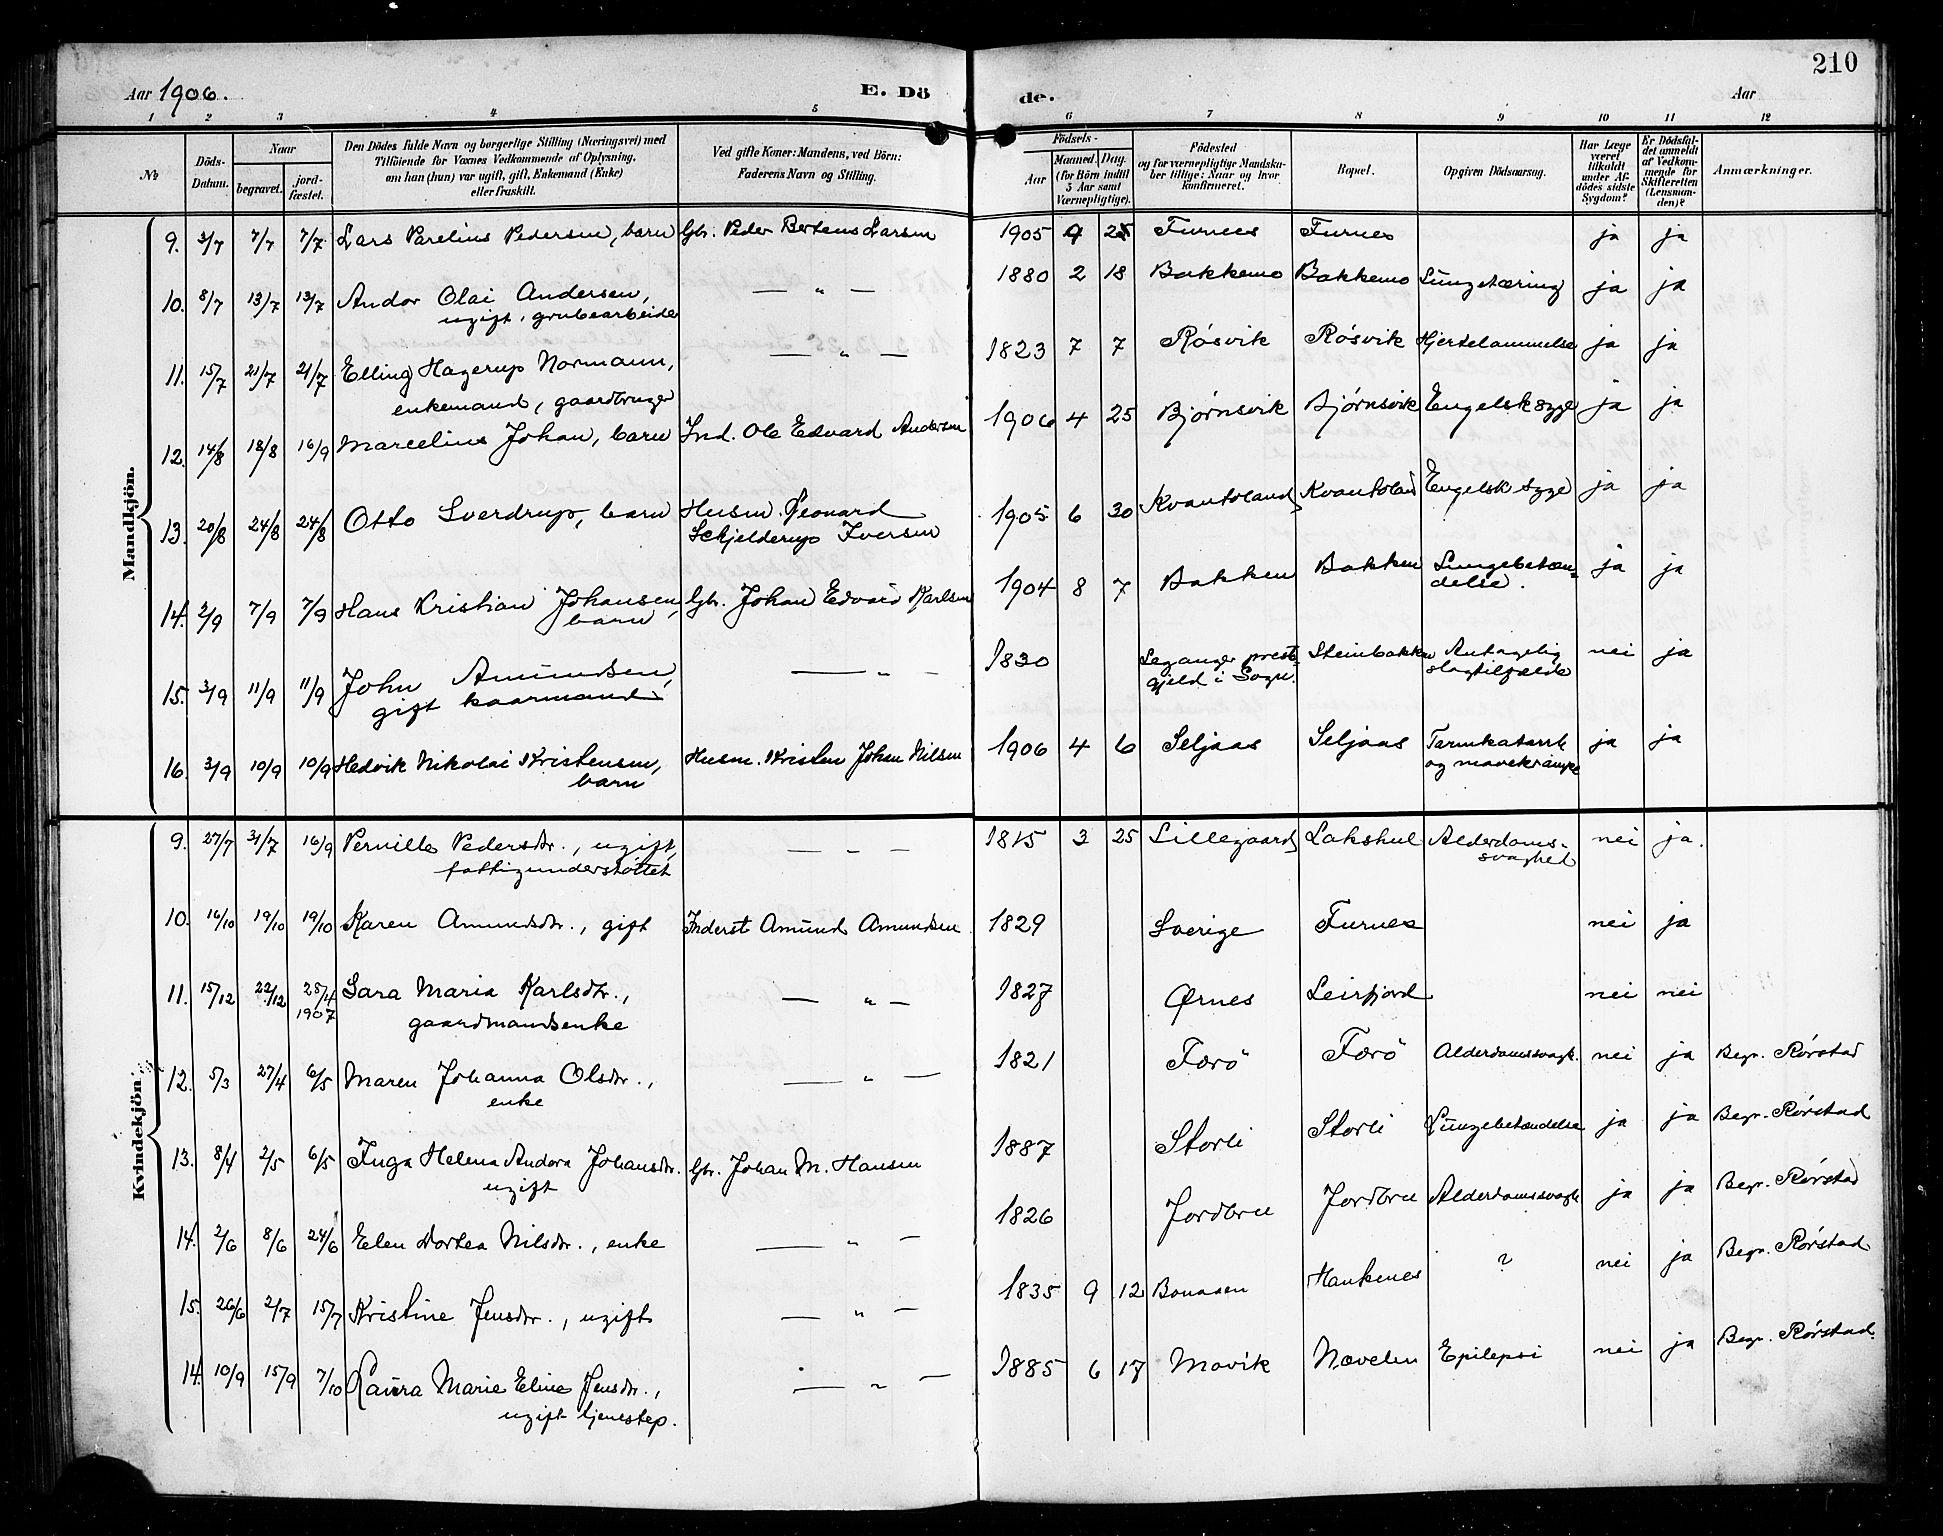 210
Aar 1906. E. Dö de. Aar
1 2 3 4 5 6 7 8 9 10 11 12
No
Döds-Datum.
Naar
begravet. jordfæstet.
Den Dödes fulde Navn og borgerlige Stilling (Næringsvei) med
Tilföiende for Voxnes Vedkommende af Oplysning,
om han (hun) var ugift, gift, Enkemand (Enke)
eller fraskilt.
Ved gifte Koner: Mandens, ved Börn:
Faderens Navn og Stilling.
Födsels-
Aar Maaned. Dag.
(for Börn indtil
5 Aar samt
Værnepligtige).
Födested
og for værnepligtige Mandska-
ber tillige: Naar og hvor
konfirmeret.
Bopæl.
Opgiven Dödsaarsag.
Har Læge
været
tilkaldt
under Af-
dödes sidste
Sygdom?
Er Dödsfal-
det anmeldt
af Vedkom-
mende for
Skifteretten
(Lensman-
den)?
Anmærkninger.
Mandkjön.
9. 3/7 7/7 7/7 Lars Parelius Pedersen, barn Gbr. Peder Bertens Larsen 1905 9 Furnes Furnes ja ja
10. 8/7 13/7 13/7 Andor Olai Andersen, — " — 1880 2 18 Bakkemo Bakkemo Lungetæring ja ja
ugift, grubearbeider
11. 15/7 21/7 21/7 Elling Hagerup Normann, — " — 1823 7 7 Røsvik Røsvik Hjertelammelse ja ja
enkemand, gaardbruger
12. 14/8 18/8 16/9 Marcelius Johan, barn Ind. Ole Edvard Andersen 1906 4 25 Bjørnsvik Bjørnsvik Engelsk syge ja ja
13. 20/8 24/8 24/8 Otto Sverdrup, barn Husm. Leonard 1905 6 30 Kvantoland Kvantoland Engelsk syge ja ja
Schjelderup Iversen
14. 2/9 7/9 7/9 Hans Kristian Johansen, Gbr. Johan Edvard Karlsen 1904 8 7 Bakken Bakken Lungebetæn-
barn delse.
ja ja
15. 3/9 11/9 11/9 John Amundsen, — " — 1830 Leganger preste- Steinbakken Antagelig nei ja
gift kaarmand gjeld i Sogn. slagtilfælde
16. 3/9 10/9 10/9 Hedvik Nikolai Kristensen, Husm. Kristen Johan Nilsen 1906 4 6 Seljaas Seljaas Tarmkatarrh ja ja
barn og mavekrampe
Kvindekjön.
9. 27/7 31/7 16/9 Pernille Pedersdr., ugift, — " — 1815 3 25 Lillegaard Lakshul Alderdoms- nei ja.
fattigunderstøttet svaghed
10. 16/10 19/10 19/10 Karen Amundsdr., gift Inderst Amund Amundsen 1829 Sverige Furnes nei ja
11. 15/12 22/12 28/4 Sara Maria Karlsdr., — " — 1827 Ørnes Leirfjord nei nei
1907
gaardmandsenke
12. 5/3 27/4 6/5 Maren Johanna Olsdr., — " — 1821 Færö Færö Alderdomssvagh. nei ja Begr. Rørstad
enke
13. 8/4 2/5 6/5 Inga Helena Andora Johansdr. Gbr. Johan M. Hansen 1887 Storli Storli Lungebetændelse ja ja Begr. Rørstad
ugift
14. 2/6 8/6 24/6 Elen Dortea Nilsdr., enke — " — 1826 Jordbru Jordbru Alderdomssvagh ja ja Begr. Rørstad
15. 26/6 2/7 15/7 Kristine Jensdr., ugift — " — 1835 9 12 Bonaasen Hankenes ? nei ja Begr. Rørstad
14. 10/9 15/9 7/10 Laura Marie Eline Jensdr., — " — 1885 6 17 Movik Nævelen Epilepsi nei ja Begr. Rørstad.
ugift tjenestep.